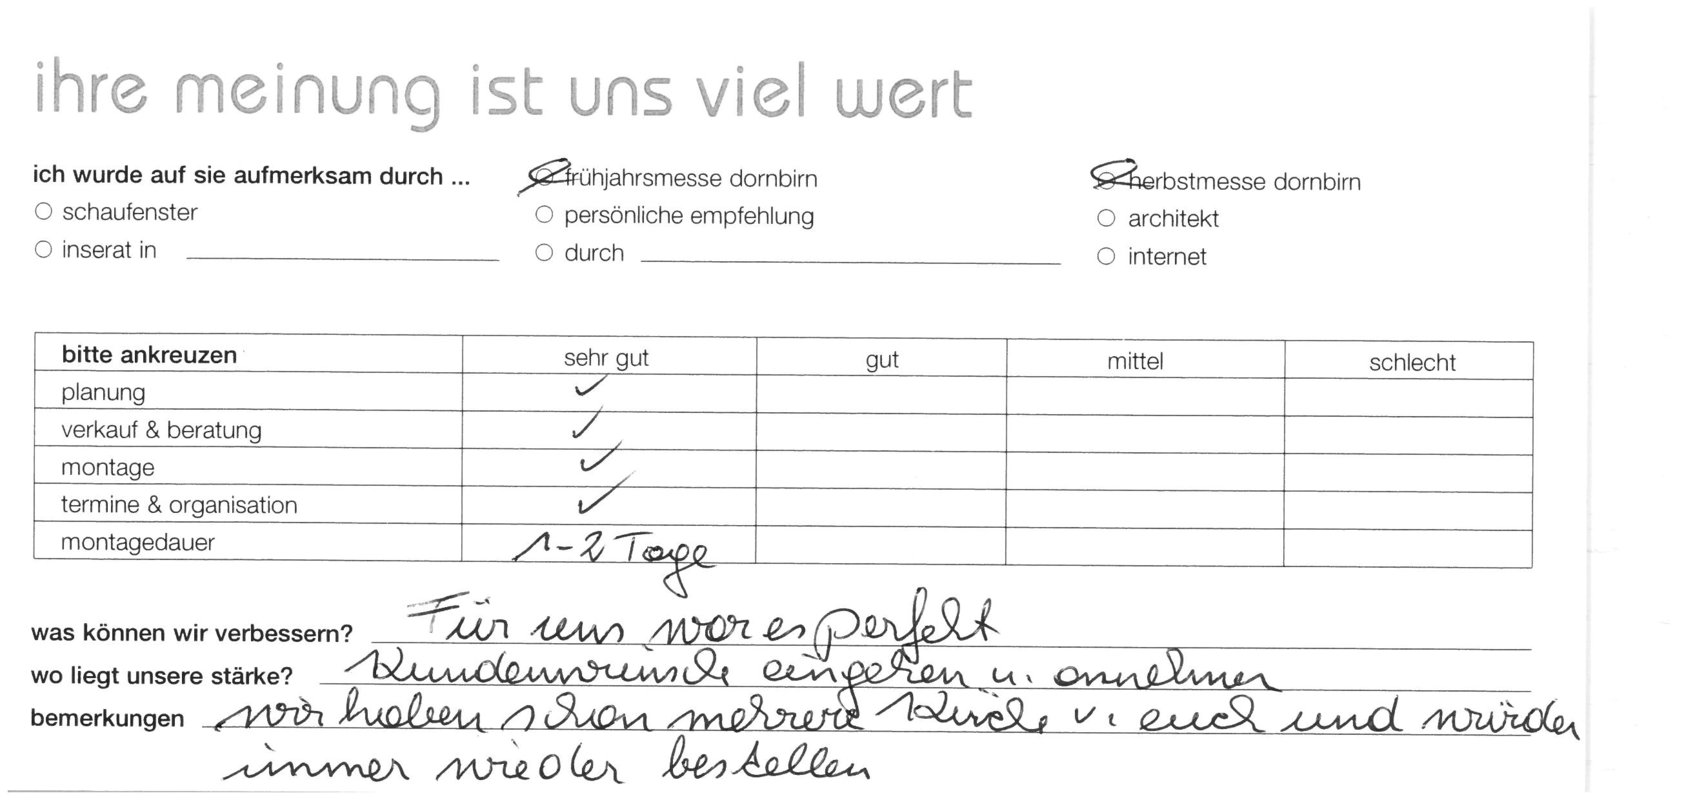 ihre meinung ist uns viel wert
ich wurde auf sie aufmerksam durch ... frühjahrsmesse dornbirn herbstmesse dornbirn
schaufenster persönliche empfehlung architekt
inserat in durch internet
bitte ankreuzen sehr gut gut mittel schlecht
planung ✓
verkauf & beratung ✓
montage ✓
termine & organisation ✓
montagedauer 1-2 Tage
was können wir verbessern? Für uns war es perfekt
wo liegt unsere stärke? Kundenwünsche eingehen u. annehmen
bemerkungen wir haben schon mehrere v. euch und würden
immer wieder bestellen